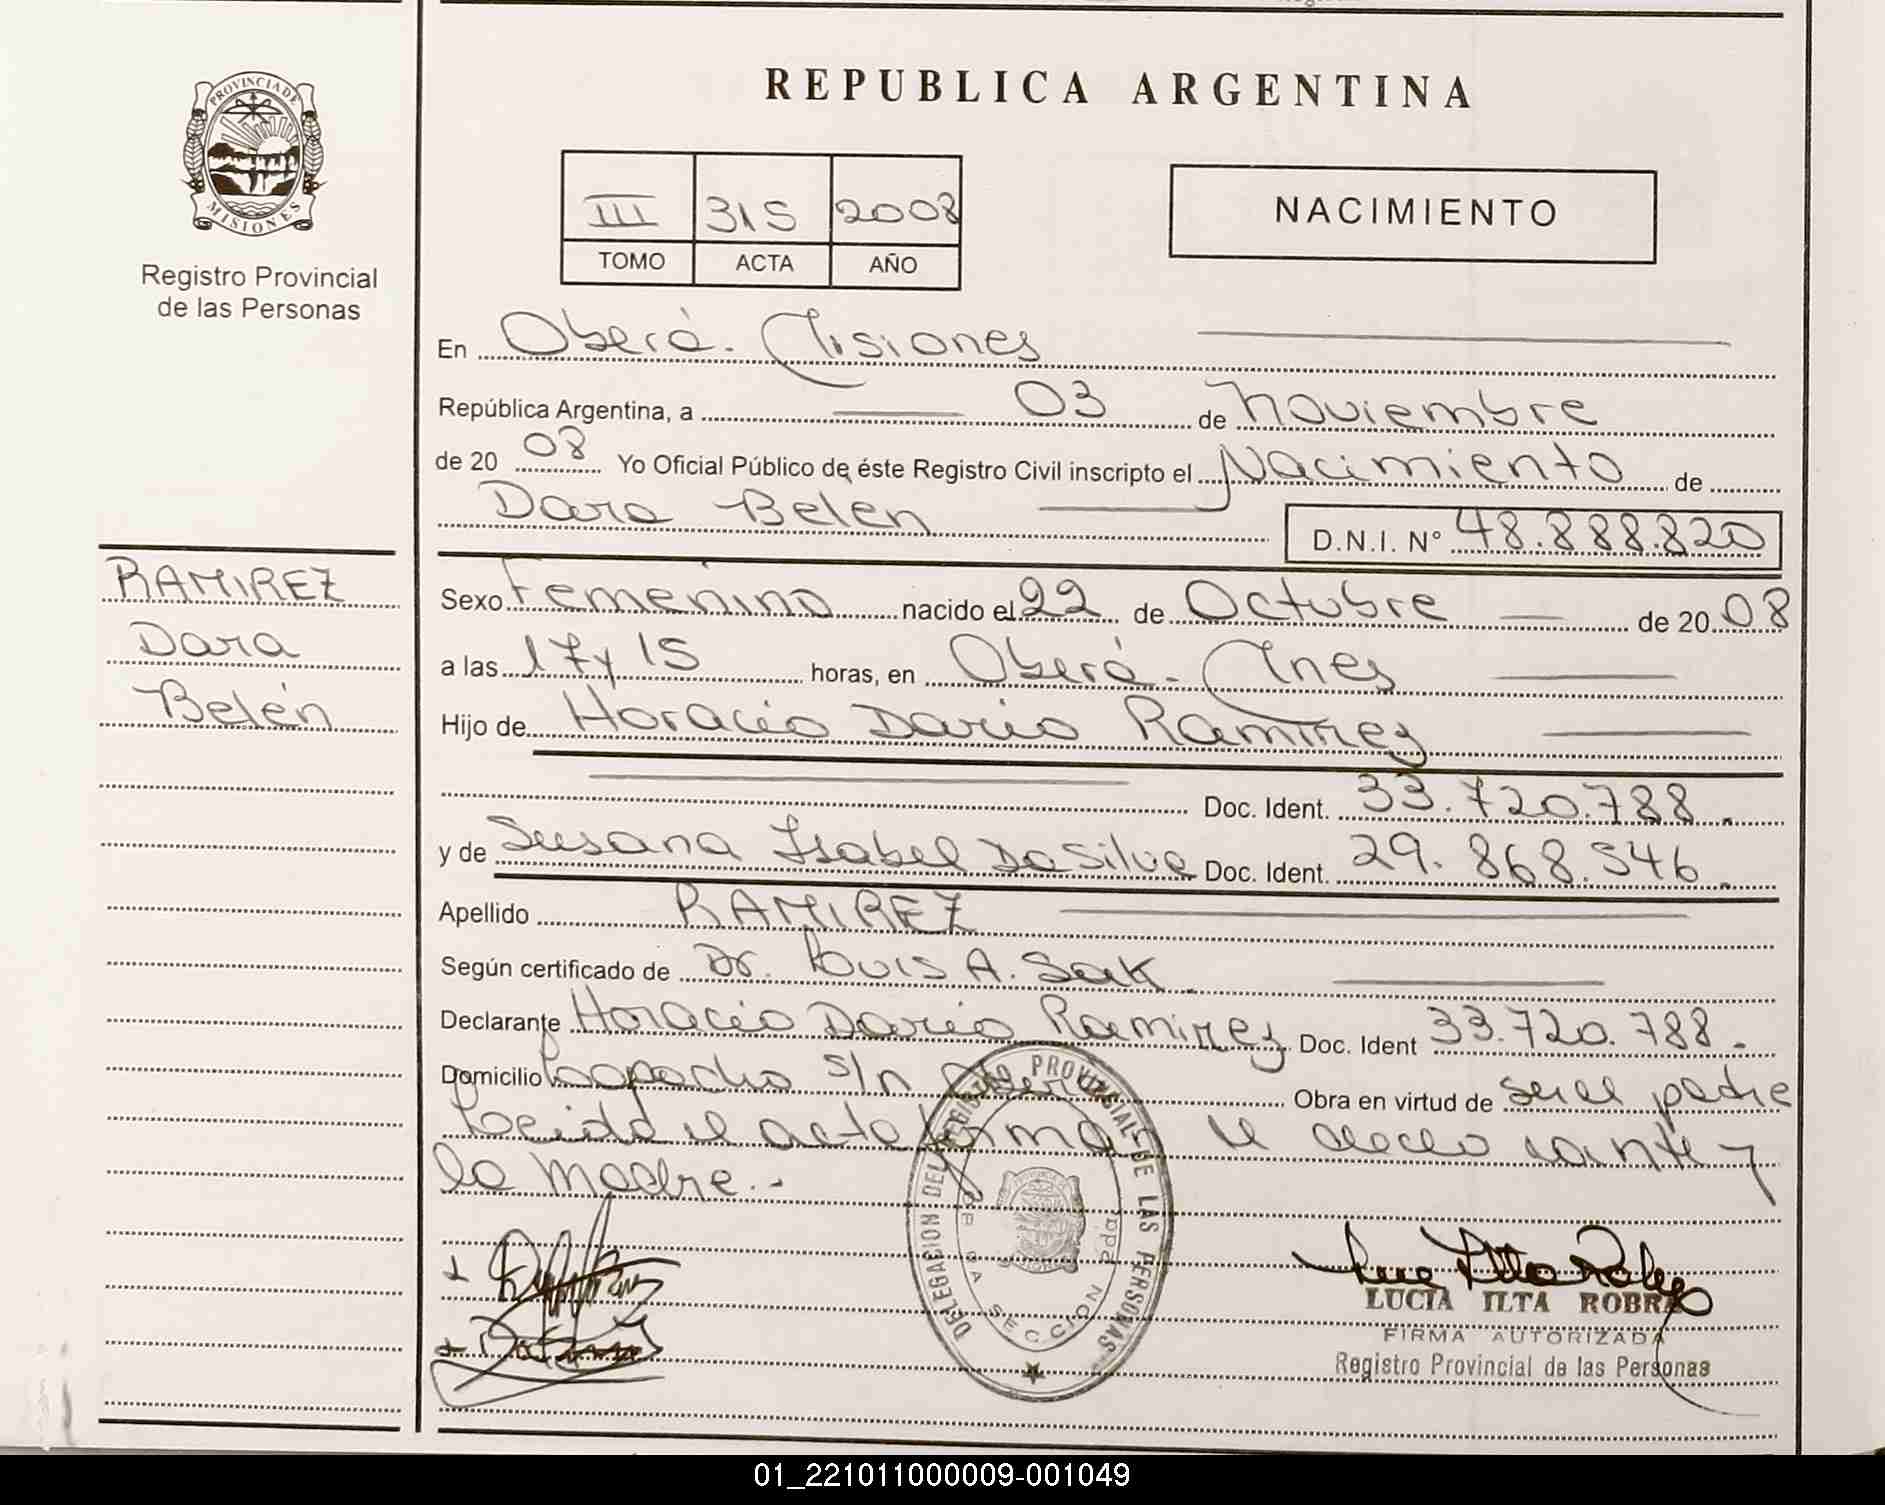 REPUBLICA ARGENTINA
PROVINCIA DE
MISIONES
Registro Provincial
de las Personas
III 315 2008
TOMO ACTA AÑO
NACIMIENTO
En Oberá - Misiones
República Argentina, a 03 de Noviembre
de 20 08 Yo Oficial Público de éste Registro Civil inscripto el Nacimiento de
Dara Belen D.N.I. Nº 48.888.820
RAMIREZ
Dara
Belén
Sexo Femenino nacido el 22 de Octubre de 20 08
a las 17 y 15 horas, en Oberá - Mnes
Hijo de Horacio Dario Ramirez
Doc. Ident. 33.720.788.
y de Susana Isabel Da Silva Doc. Ident. 29.868.546.
Apellido RAMIREZ
Según certificado de Dr. Louis A. Sak
Declarante Horacio Dario Ramirez Doc. Ident 33.720.788.
Domicilio Lapacho s/n Obera Obra en virtud de ser el padre
Leida el acta firma el declarante y
la madre.-
DELEGACION DEL REGISTRO PROVINCIAL DE LAS PERSONAS
SECCION
LUCIA ILTA ROBRA
FIRMA AUTORIZADA
Registro Provincial de las Personas
01_221011000009-001049